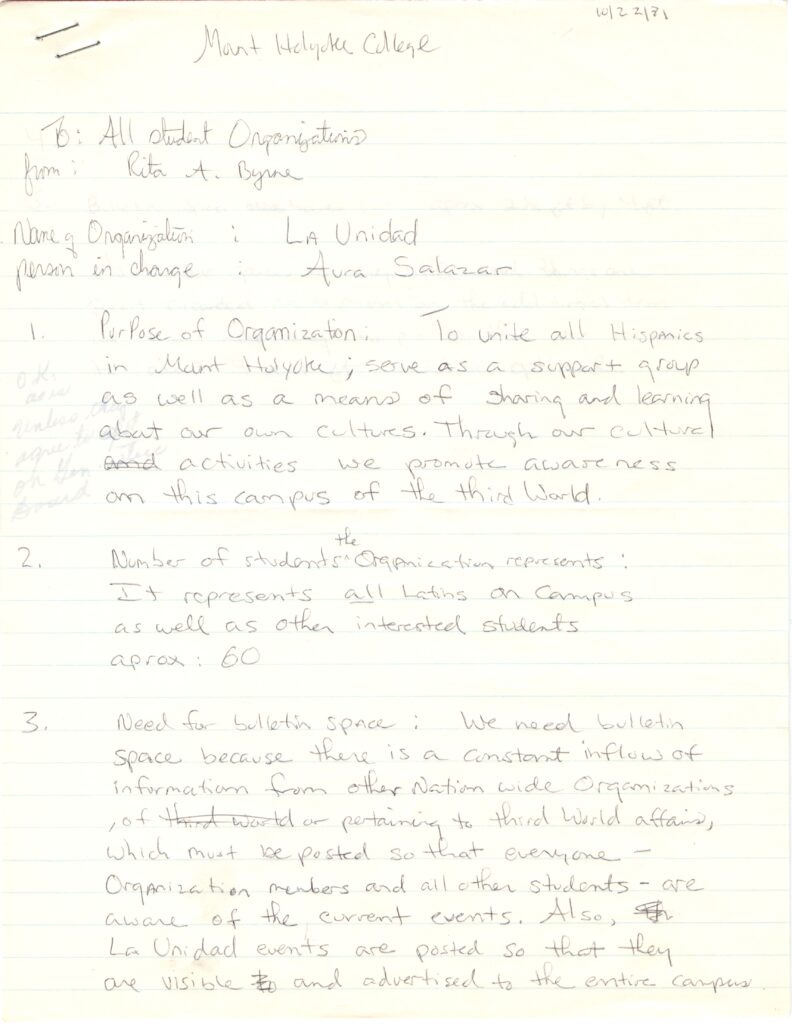 10/22/81
Mount Holyoke College
To: All student Organizations
from: Rita A. Byrne
Name of Organization : LA Unidad
person in charge : Aura Salazar
1. Purpose of Organization: To unite all Hispanics
in Mount Holyoke; serve as a support group
as well as a means of sharing and learning
about our own cultures. Through our cultural
and activities we promote awareness
on this campus of the third World.
O.K.
as is
unless they
agree to
on
board
2. Number of students the Organization represents:
It represents all Latins on Campus
as well as other interested students
aprox: 60
3. Need for bulletin space: We need bulletin
space because there is a constant inflow of
information from other Nation wide Organizations
, of third world or pertaining to third World affairs,
which must be posted so that everyone –
Organization members and all other students – are
aware of the current events. Also,
La Unidad events are posted so that they
are visible to and advertised to the entire campus.